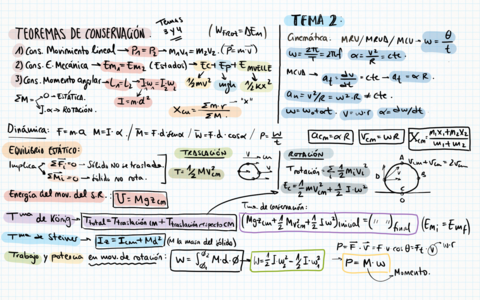 TEOREMAS DE CONSERVACIÓN.
Temas 3 y 4
(W_Frot = ΔEm)
1) Cons. Movimiento lineal → P₁ = P₂ → m₁v₁ = m₂v₂. (P = m·v)
2) Cons. E. Mecánica → Em₁ = Em₂ (Estados) → Ec + Ep + E_MUELLE
½mv² mgh ½kx²
3) Cons. Momento angular → L₁ = L₂ → I₁w = I₂w
ΣM = 0 → ESTÁTICA.
I·α → ROTACIÓN.
I = m·d²
X_cm = Σm·r / Σm → "x"
TEMA 2:
Cinemática: MRU / MRUA / MCU → w = θ/t
w = 2π/T = 2πf α = v²/R = cte
MCUA → a_t = dv/dt = cte → a_t = α·R.
a_n = v²/R = w²·R ≠ cte.
w = w₀ + αt v = w·r α = dw/dt
Dinámica: F = m·a M = I·α / M = F·d·senα / W = F·d·cosα / P = W/t
a_cm = α·R v_cm = w·R X_cm = m₁x₁ + m₂x₂ / m₁ + m₂
EQUILIBRIO ESTÁTICO:
Implica ΣFᵢ = 0 → Sólido no se traslada.
ΣMᵢ = 0 → Sólido no rota.
TRASLACIÓN
T = ½ M v²cm
ROTACIÓN
Trotación = Σ ½ mᵢ vᵢ²
Ec = ½ m v²cm + ½ I·w²
A
B
C
D
O
V_cm + V_cm = 2V_cm
Energía del mov. del S.R. U = Mg z_cm
Tma de König → T_total = T_traslación cm + T_traslación respecto cm
Tma de conservación:
(Mg z_cm + ½ M v²cm + ½ I w²)inicial = ( " " )final (Em_i = Em_f)
Tma de Steiner → I_a = I_cm + Md² (M la masa del sólido)
Trabajo y potencia en mov. de rotación: W = ∫ M·d·Ø → W = ½ I w_f² − ½ I·w₀²
P = F·v = f v cosθ = F_t·v → w·r
P = M·w
Momento.